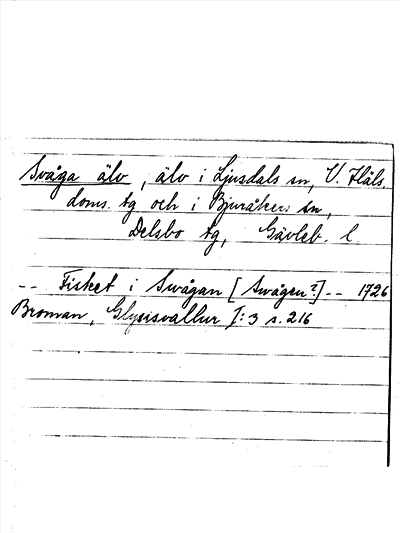 Svåga älv, älv i Ljusdals sn, V. Häls.
doms. tg och i Bjuråkers sn,
Delsbo tg, Gävleb. l
-- Fisket i Swågan [Swågen?] -- 1726
Broman, Glysisvallur I:3 s. 216